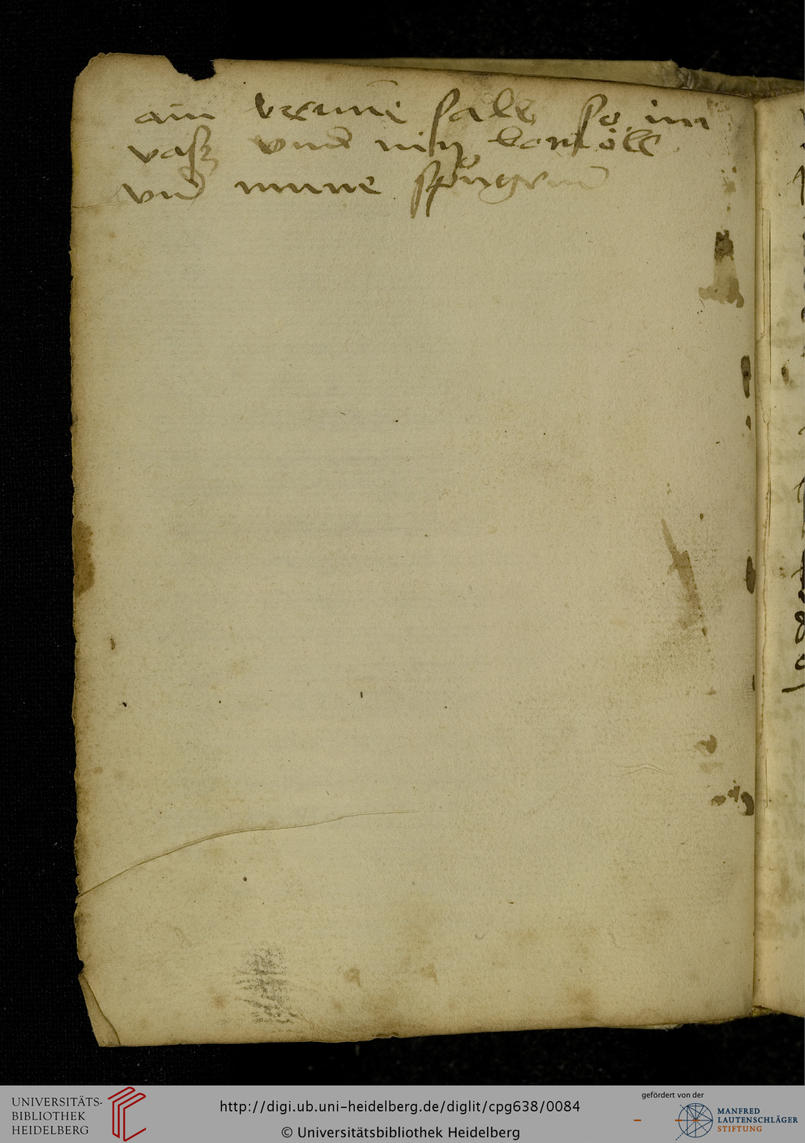 ain brune salb so im
vasz vnd nim loröll
vnd nime spōngrün
UNIVERSITÄTS-
BIBLIOTHEK
HEIDELBERG
http://digi.ub.uni-heidelberg.de/diglit/cpg638/0084
© Universitätsbibliothek Heidelberg
gefördert von der
MANFRED
LAUTENSCHLÄGER
STIFTUNG